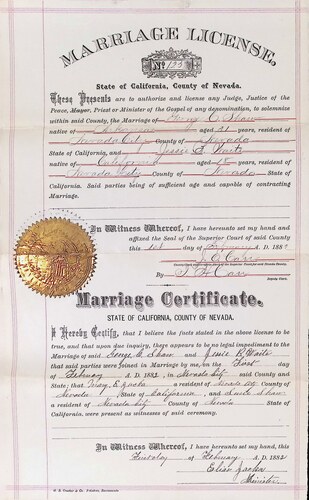 MARRIAGE LICENSE,
No. 133
State of California, County of Nevada.
These Presents are to authorize and license any Judge, Justice of the
Peace, Mayor, Priest or Minister of the Gospel of any denomination, to solemnize
within said County, the Marriage of George C. Shaw
native of aged 31 years, resident of
Nevada City County of Nevada
State of California, and Jessie B. Waite
native of California aged 18 years, resident of
Nevada City, County of Nevada State of
California. Said parties being of sufficient age and capable of contracting
Marriage.
In Witness Whereof, I have hereunto set my hand and
affixed the Seal of the Superior Court of said County
this 1st day of February A. D. 188
By
Deputy Clerk.
Marriage Certificate.
STATE OF CALIFORNIA, COUNTY OF NEVADA.
I Hereby Certify, that I believe the facts stated in the above license to be
true, and that upon due inquiry, there appears to be no legal impediment to the
Marriage of said George C. Shaw and Jessie B. Waite
that said parties were joined in Marriage by me, on the First day
of February A. D. 1882, in Nevada City said County and
State; that Mary E. a resident of Nevada City County of
Nevada, State of California, and Shaw
a resident of Nevada City County of Nevada State of
California, were present as witnesses of said ceremony.
In Witness Whereof, I have hereunto set my hand, this
First day of February, A. D. 1882
Minister